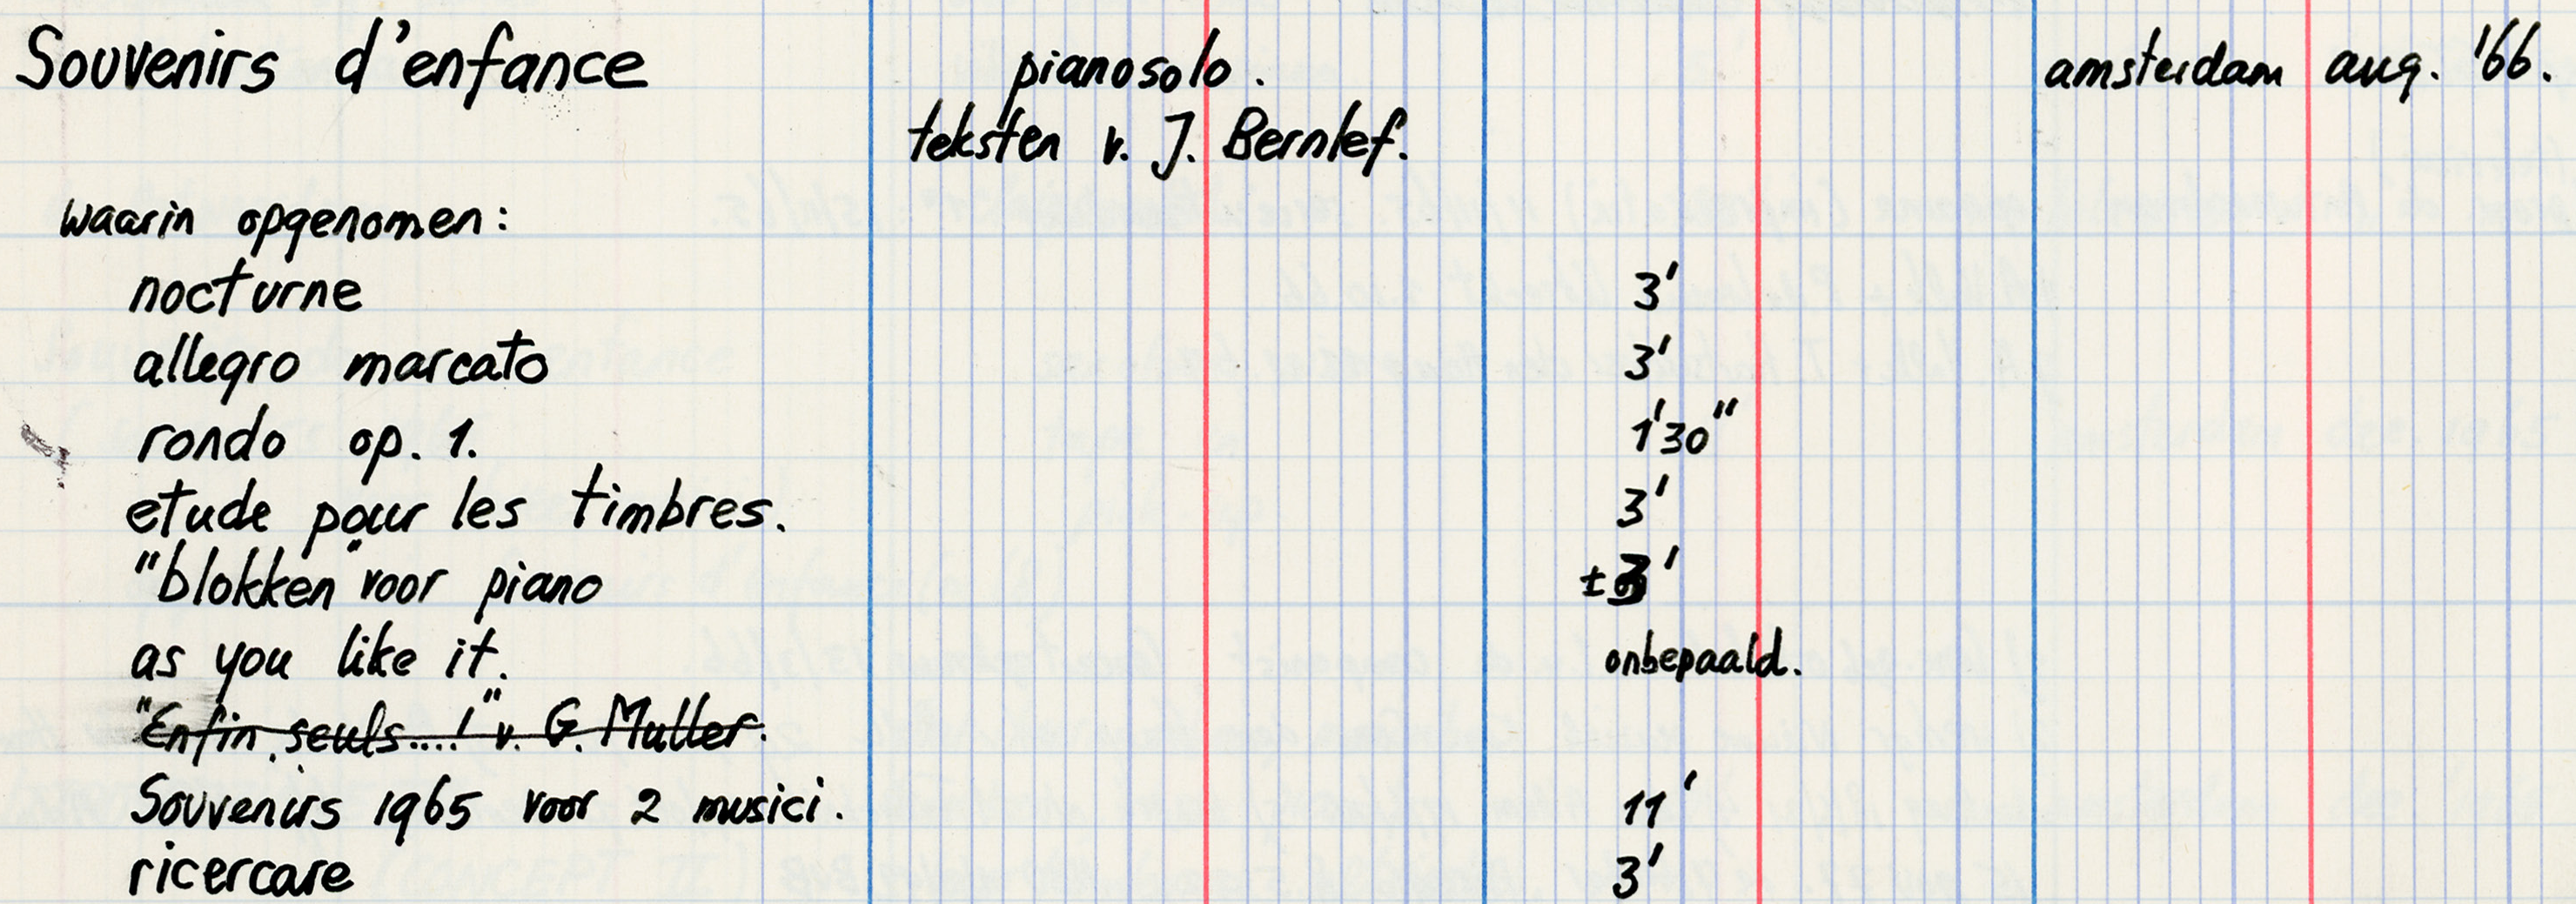 Souvenirs d'enfance pianosolo. amsterdam aug. '66.
teksten v. J. Bernlef.
waarin opgenomen:
nocturne 3'
allegro marcato 3'
rondo op. 1. 1'30"
etude pour les timbres. 3'
"blokken" voor piano ±3'
as you like it. onbepaald.
"Enfin seuls....!" v. G. Muller.
Souvenirs 1965 voor 2 musici. 11'
ricercare 3'